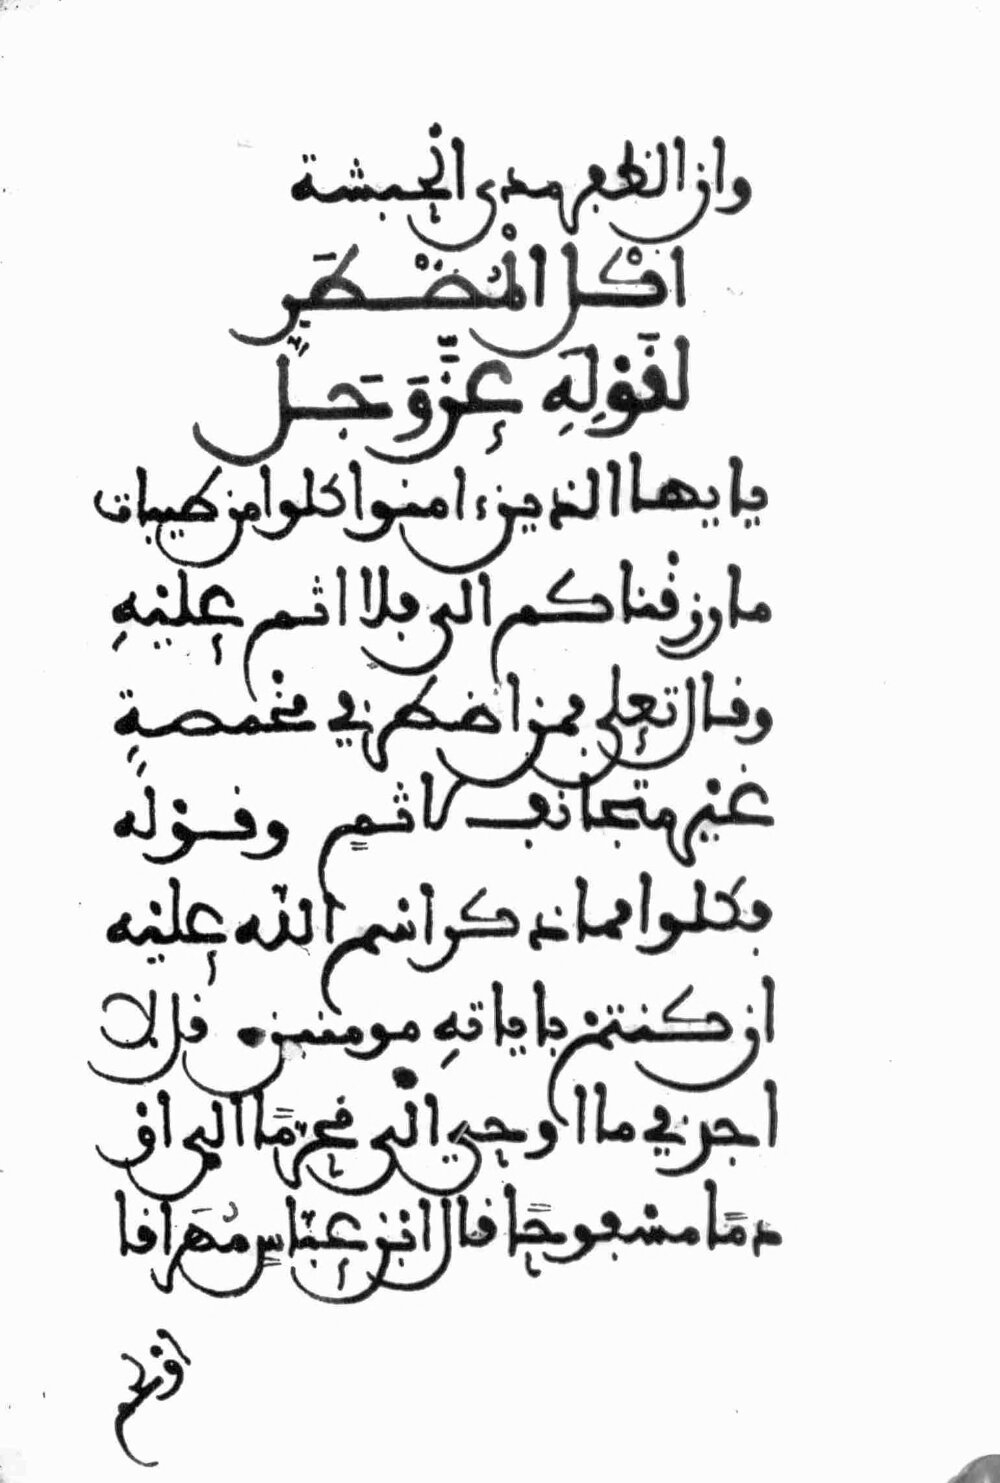 وان الظفر مدى الحبشة
اكل المُضْطَرِ
لقَوْلِهِ عَزَّ وَجَلَّ
يايها الذين ءامنوا كلوا من طيبات
ما رزقناكم الى فلا اثم عليْهِ
وقال تعلى فمن اضطر في مخمصةٍ
غيْر متجانف لاثمٍ وقوْله
فكلوا مما ذكر اسْم اللّه عليْه
ان كنتم بئاياتهِ مومنين قل لا
اجد في ما اوحي الي محرّمًا الى اوْ
دمًا مسفوحًا قال ابن عبّاسٍ مُهَراقا